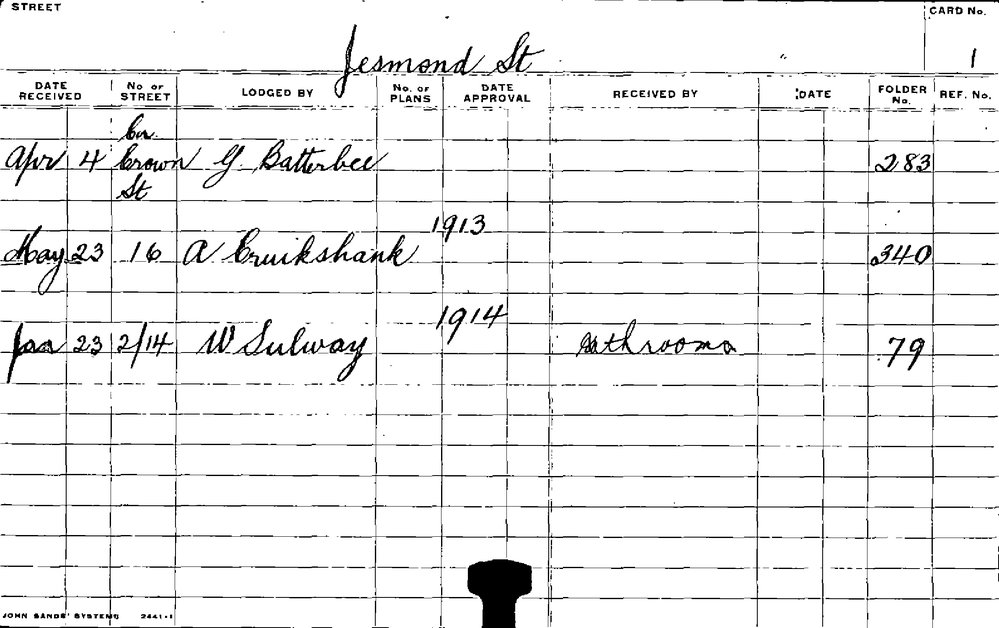 STREET
CARD No.
Jesmond St 1
DATE RECEIVED No OF STREET LODGED BY No. OF PLANS DATE APPROVAL RECEIVED BY DATE FOLDER No. REF. No.
Cor.
Apr 4 Crown G. Batterbee 283
St
1913
May 23 16 A Cruikshank 340
1914
Jan 23 2/14 W Sulway Bathrooms 79
JOHN SANDS' SYSTEMS 2441-1